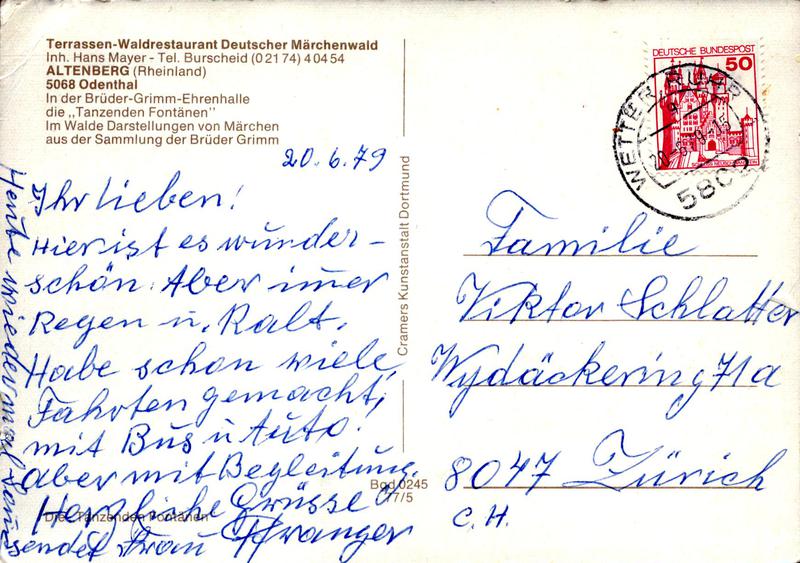 Terrassen-Waldrestaurant Deutscher Märchenwald
Inh. Hans Mayer - Tel. Burscheid (0 21 74) 4 04 54
ALTENBERG (Rheinland)
5068 Odenthal
In der Brüder-Grimm-Ehrenhalle
die „Tanzenden Fontänen"
Im Walde Darstellungen von Märchen
aus der Sammlung der Brüder Grimm
20.6.79
Ihr lieben!
Hier ist es wunder-
schön. Aber imer
Regen u. Kalt.
Habe schon viele
Fahrten gemacht,
mit Bus u Auto.
Aber mit Begleitung.
Herzliche Grüsse
sendet Frau
Heute wieder mal
Die „Tanzenden Fontänen"
Cramers Kunstanstalt Dortmund
Bgd 0245
C 7/5
DEUTSCHE BUNDESPOST
50
WETTER, RUHR
5802
Familie
Viktor Schlatter
Wydäckering 71a
8047 Zürich
C.H.